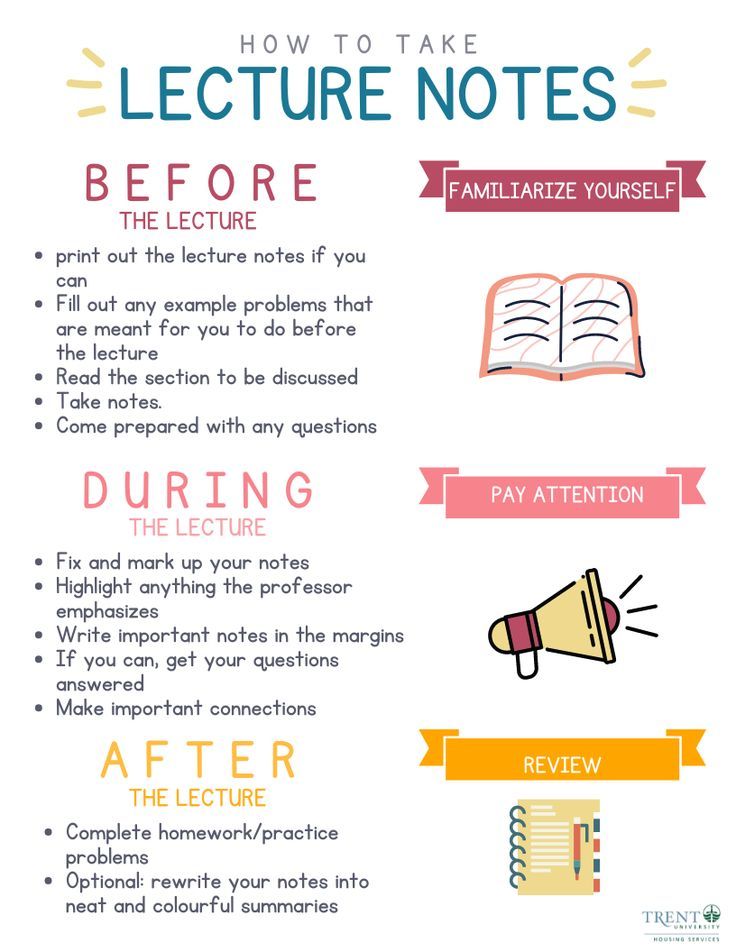 HOW TO TAKE
LECTURE NOTES
BEFORE
THE LECTURE
• print out the lecture notes if you
can
• Fill out any example problems that
are meant for you to do before
the lecture
• Read the section to be discussed
• Take notes.
• Come prepared with any questions
FAMILIARIZE YOURSELF
DURING
THE LECTURE
• Fix and mark up your notes
• Highlight anything the professor
emphasizes
• Write important notes in the margins
• If you can, get your questions
answered
• Make important connections
PAY ATTENTION
AFTER
THE LECTURE
• Complete homework/practice
problems
• Optional: rewrite your notes into
neat and colourful summaries
REVIEW
TRENT
UNIVERSITY
HOUSING SERVICES